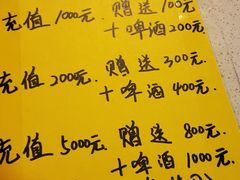 充值1000元, 赠送100元
+啤酒200元
充值2000元. 赠送300元
+啤酒400元.
充值5000元. 赠送800元
+啤酒1000元